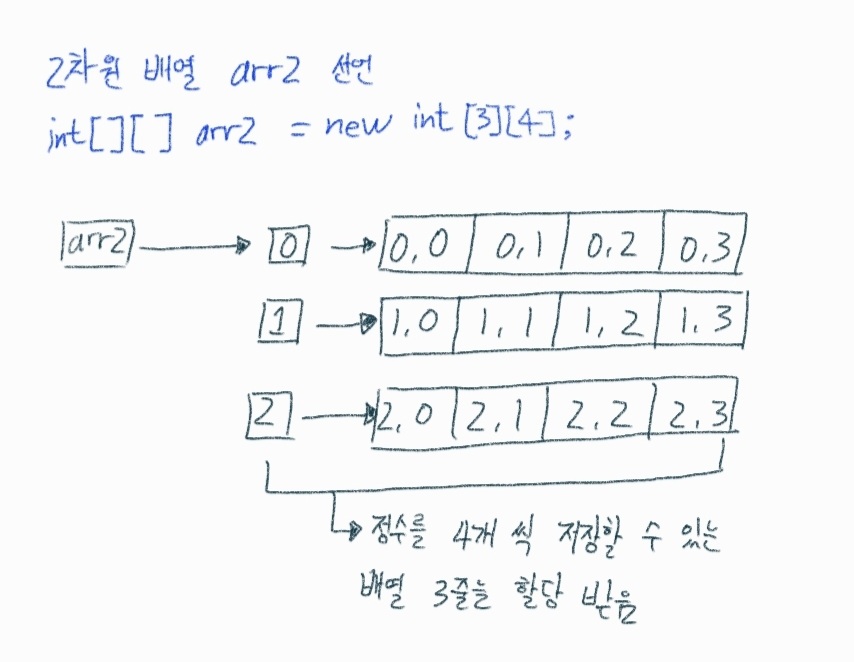 2차원 배열 arr2 선언
int[][] arr2 = new int [3][4];
arr2 0 0,0 0,1 0.2 0.3
1 1,0 1,1 1,2 1.3
2 2,0 2,1 2.2 2.3
정수를 4개 씩 저장할 수 있는
배열 3줄늘 할당 받음